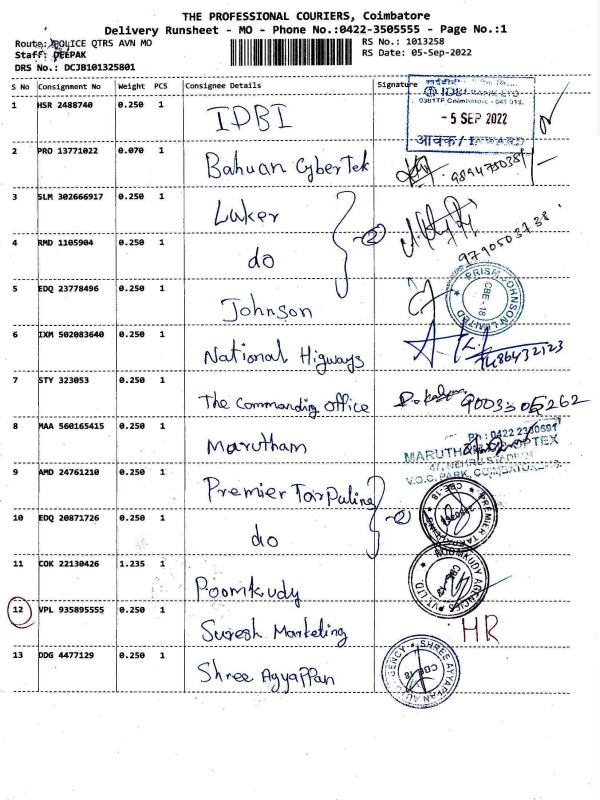 THE PROFESSIONAL COURIERS, Coimbatore
Delivery Runsheet - MO - Phone No.:0422-3505555 - Page No.:1
Route: POLICE QTRS AVN MO RS No.: 1013258
Staff: DEEPAK RS Date: 05-Sep-2022
DRS No.: DCJB101325801
S No Consignment No Weight PCS Consignee Details Signature
1 HSR 2488740 0.250 1 IDBI
IDBI BANK LTD
- 5 SEP 2022
आवक/INWARD
2 PRO 13771022 0.070 1 Bahuan CyberTek
3 SLM 302666917 0.250 1 Luker 2
4 RMD 1105904 0.250 1 do 9790503738
5 EDQ 23778496 0.250 1 Johnson PRISM JOHNSON LIMITED CBE-18
6 IXM 502083640 0.250 1 National Higways
7 STY 323053 0.250 1 The Commanding Office
8 MAA 560165415 0.250 1 Marutham
47, NEHRU STADIUM
V.O.C. PARK, COIMBATORE-18.
9 AMD 24761210 0.250 1 Premier Tarpulins 2
10 EDQ 20871726 0.250 1 do
11 COK 22130426 1.235 1 Poomkudy POOMKUDY AGENCIES PVT. LTD.
12 VPL 935895555 0.250 1 Suresh Marketing HR
13 DDG 4477129 0.250 1 Shree Ayyappan SHREE AYYAPPAN AGENCY CBE-18